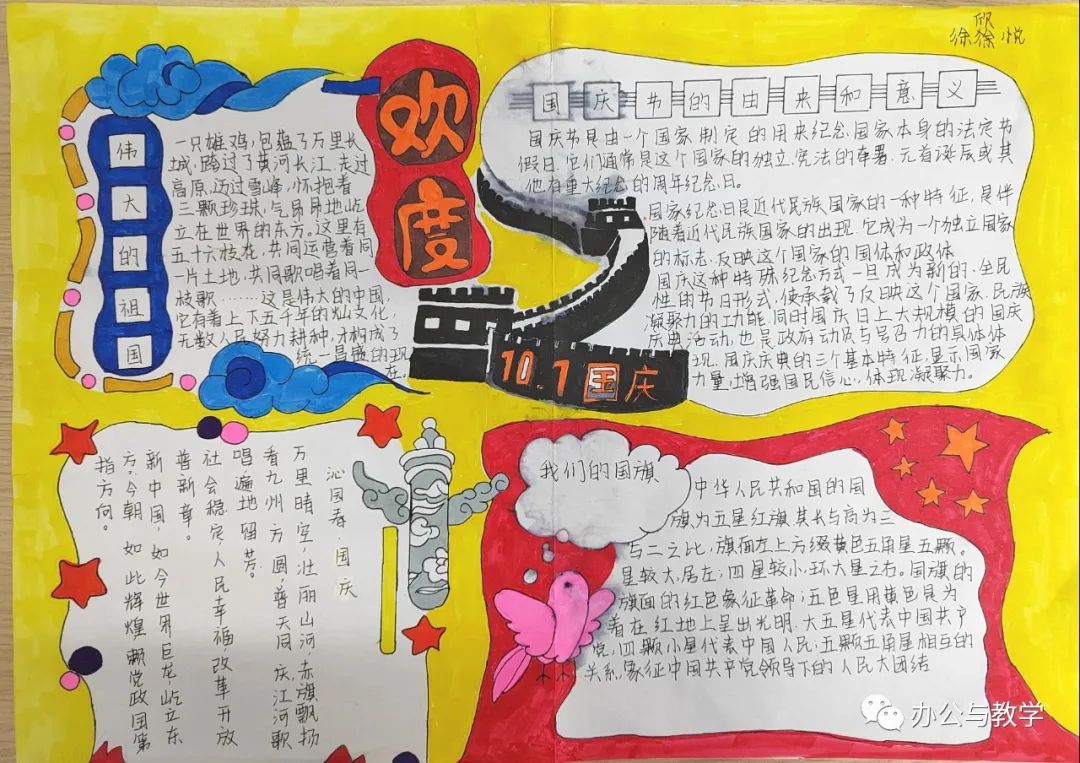 欣
徐徐悦
欢
度
伟
大
的
祖
国
一只雄鸡，包蕴了万里长
城，跨过了黄河长江，走过
高原，迈过雪峰，怀抱着
三颗珍珠，气昂昂地屹
立在世界的东方。这里有
五十六枝花，共同运营着同
一片土地，共同歌唱着同一
枝歌……这是伟大的中国，
它有着上下五千年的灿文化，
无数人民努力耕种，才构成了
统一昌盛的现
在。
国庆节的由来和意义
国庆节是由一个国家制定的用来纪念国家本身的法定节
假日，它们通常是这个国家的独立、宪法的签署、元首诞辰或其
他有重大纪念的周年纪念日。
国家纪念日是近代民族国家的一种特征，是伴
随着近代民族国家的出现，它成为一个独立国家
的标志，反映这个国家的国体和政体
国庆这种特殊纪念方式一旦成为新的、全民
性的节日形式，便承载了反映这个国家、民族
凝聚力的功能，同时国庆日上大规模的国庆
庆典活动，也是政府动员与号召力的具体体
现，国庆庆典的三个基本特征，显示国家
力量，增强国民信心，体现凝聚力。
10.1国庆
沁园春·国庆
万里晴空，壮丽山河，赤旗飘扬
看九州方圆，普天同庆，江河歌
唱，遍地留芳。
社会稳定人民幸福改革开放
普新章。
新中国，如今世界巨龙，屹立东
方，今朝，如此辉煌，赖党政国策
指方向。
我们的国旗
中华人民共和国的国
旗为五星红旗，其长与高为三
与二之比，旗面左上方缀黄色五角星五颗。
星较大，居左，四星较小，环大星之右。国旗的
旗面的红色象征革命；五色星用黄色是为
着在红地上呈出光明，大五星代表中国共产
党，四颗小星代表中国人民；五颗五角星相互的
关系，象征中国共产党领导下的人民大团结
办公与教学